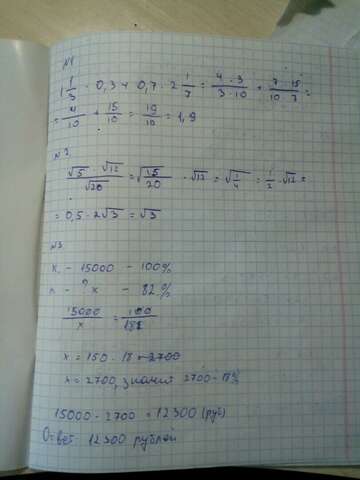 №1
1 1/3 · 0,3 + 0,7 · 2 1/7 = 4·3/3·10 + 7·15/10·7 =
= 4/10 + 15/10 = 19/10 = 1,9
№2
√5 · √12/√20 = √5/20 · √12 = √1/4 = 1/2 · √12 =
= 0,5 · 2√3 = √3
№3
К. – 15000 – 100%
п – ? х – 82%
15000/х = 100/18
х = 150 · 18 = 2700
х = 2700, значит 2700 – 18%
15000 – 2700 = 12300 (руб)
Ответ 12300 рублей